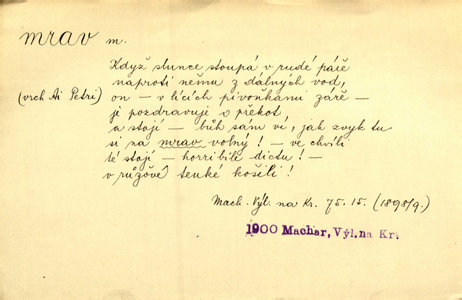 mrav m.
Když slunce stoupá v rudé páře
naproti němu z dálných vod,
(vrch Ai Petri) on – v lících pivoňkami záře –
ji pozdravuje o překot
a stojí – bůh sám ví, jak zvyk tu
si na mrav volný! – ve chvíli
té stojí – horribile dictu! –
v růžové tenké košili!
Mach. Výl. na Kr. 75.15. (1898/9.)
1900 Machar, Výl. na Kr.